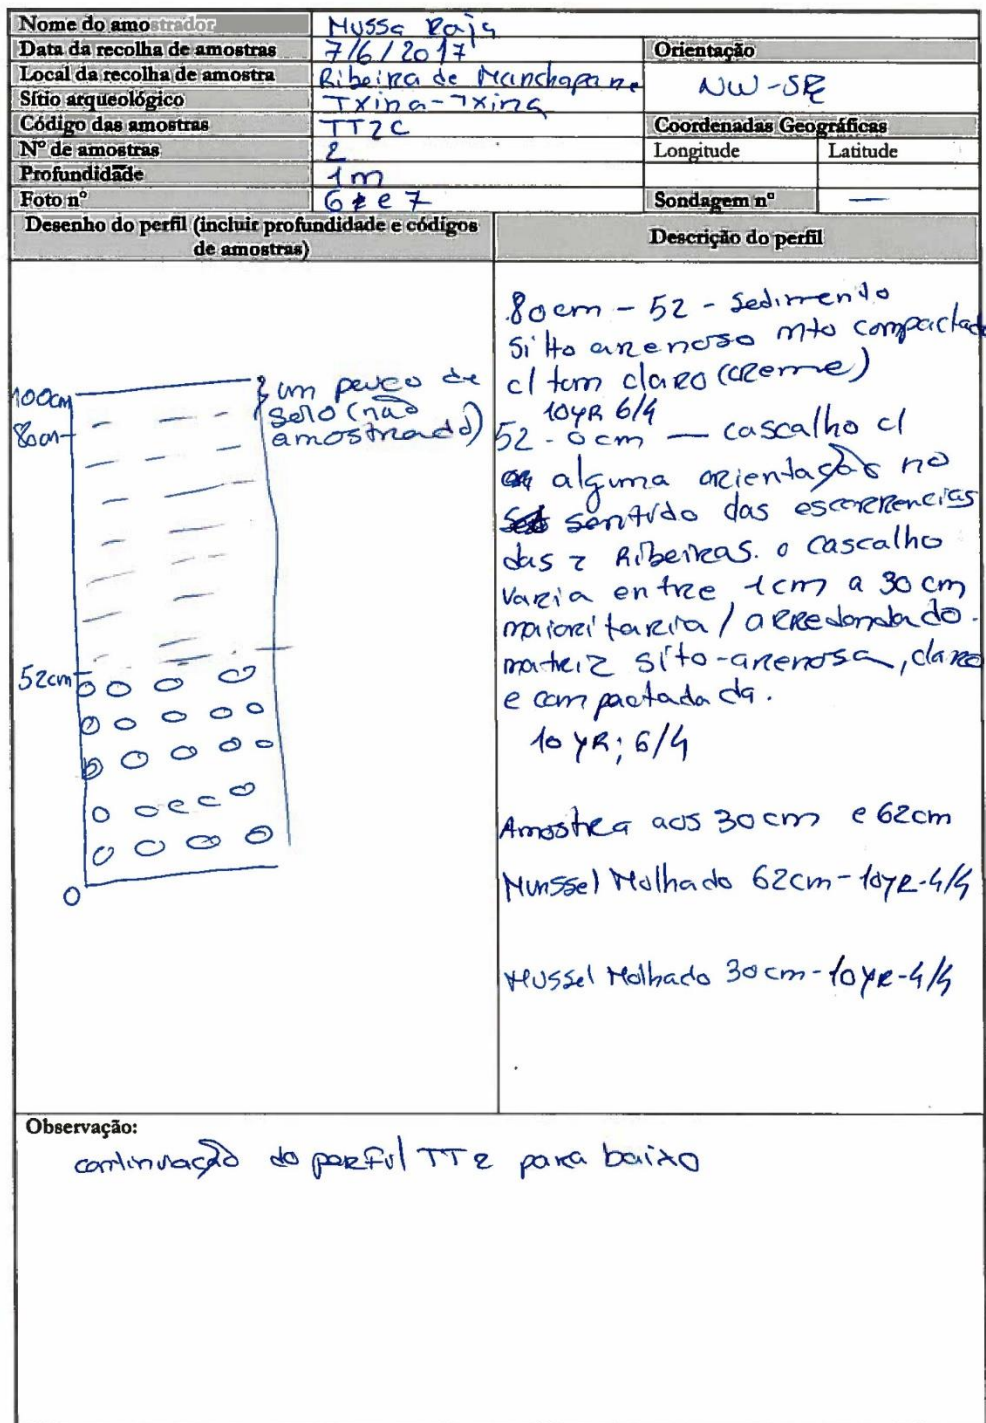 Nome do amostrador Mussa Raja
Data da recolha de amostras 7/6/2017 Orientação
Local da recolha de amostra Ribeira de Manchapane NW-SE
Sítio arqueológico Txina-Txina
Código das amostras TT2C Coordenadas Geográficas
Nº de amostras 2 Longitude Latitude
Profundidade 1m
Foto nº 6 e 7 Sondagem nº —
Desenho do perfil (incluir profundidade e códigos de amostras) Descrição do perfil
100cm
80cm
um pouco de
solo (não
amostrado)
52cm
0
80cm - 52 - sedimento
silto arenoso mto compactado
c/ tom claro (creme)
10YR 6/4
52 - 0cm — cascalho c/
alguma orientação no
sentido das escorrencias
das Ribeiras. o cascalho
varia entre 1cm a 30cm
maioritaria/ arredondado.
matriz sito-arenosa, claro
e compactada da.
10 YR; 6/4
Amostra aos 30cm e 62cm
Munssel Molhado 62cm - 10YR-4/4
Mussel Molhado 30cm - 10YR-4/4
Observação:
continuação do perful TT2 para baixo